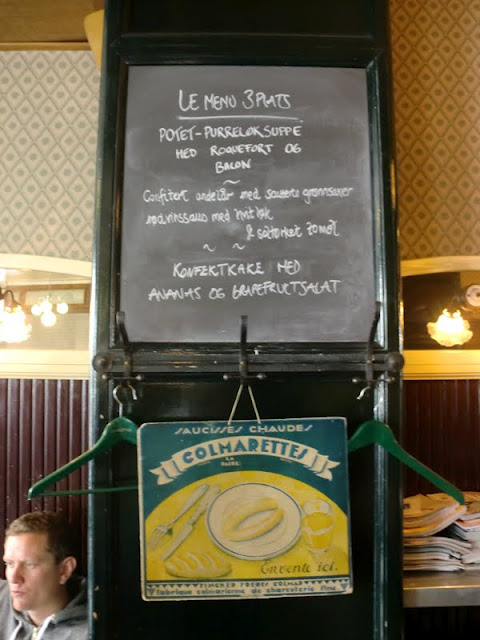 LE MENU 3 PLATS
POTET-PURRELØKSUPPE
MED ROQUEFORT OG
BACON
~
Confitert andelår med sauterte grønnsaker
rødvinssaus med hvitløk
& soltørket tomat
~ ~
KONFEKTKAKE MED
ANANAS OG GRAPEFRUCTSALAT
SAUCISSES CHAUDES
COLMARETTES
LA
PAIRE
En vente ici.
FRERES COLMAR
fabrique colmarienne de charcuterie fine